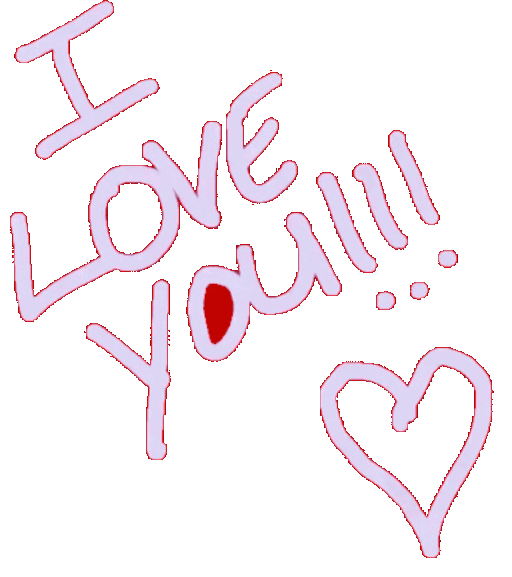 I
LOVE
You!!!